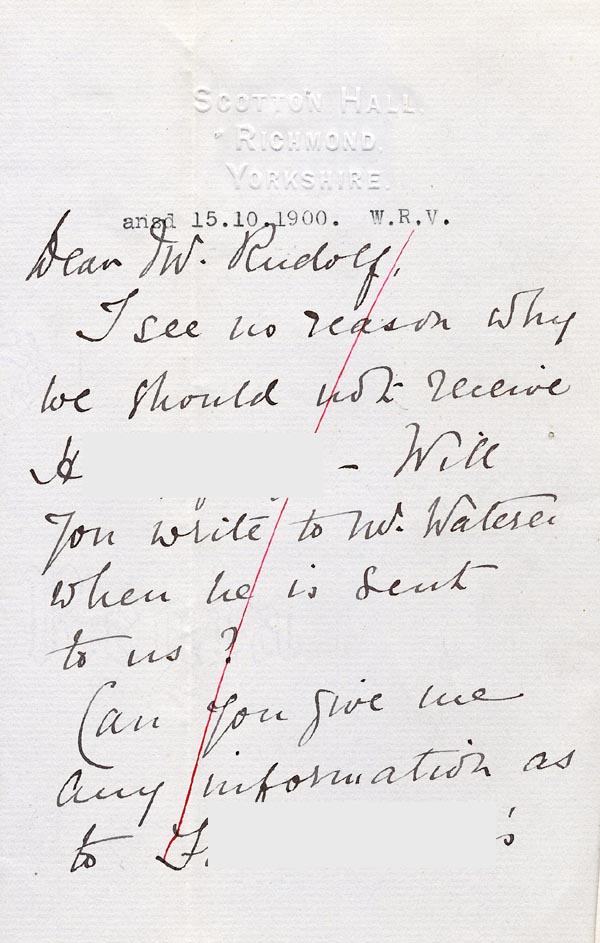 SCOTTON HALL,
RICHMOND,
YORKSHIRE.
ansd 15.10.1900. W.R.V.
Dear Mr. Rudolf,
I see no reason why
we should not receive
H
- Will
you write to Mr.
when he is sent
to us?
Can you give me
any information as
to F. 's